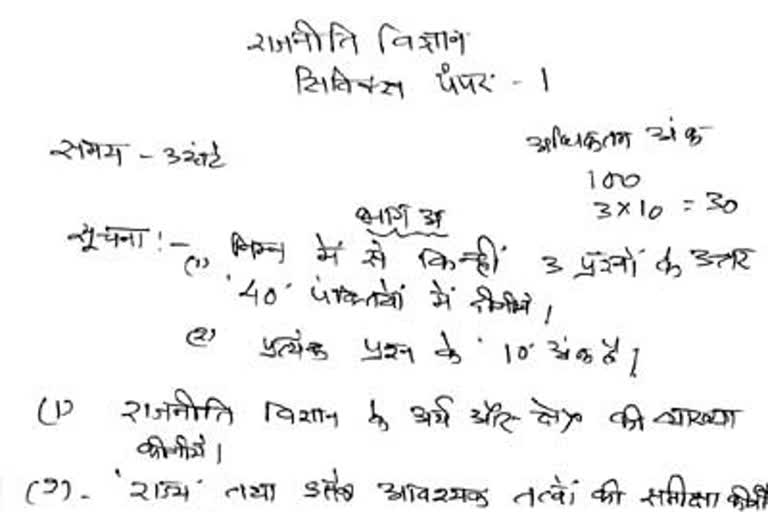 राजनीति विज्ञान
सिविक्स पेपर - 1
समय - 3 घंटे
अधिकतम अंक
100
3 × 10 = 30
भाग अ
सूचना :- (1) निम्न में से किन्हीं 3 प्रश्नों के उत्तर
'40' पंक्तियों में दीजीये।
(2) प्रत्येक प्रश्न के '10' अंक है।
(1) राजनीति विज्ञान के अर्थ और क्षेत्र की व्याख्या
कीजीये।
(2) - 'राज्य' तथा इसके आवश्यक तत्वों की समीक्षा